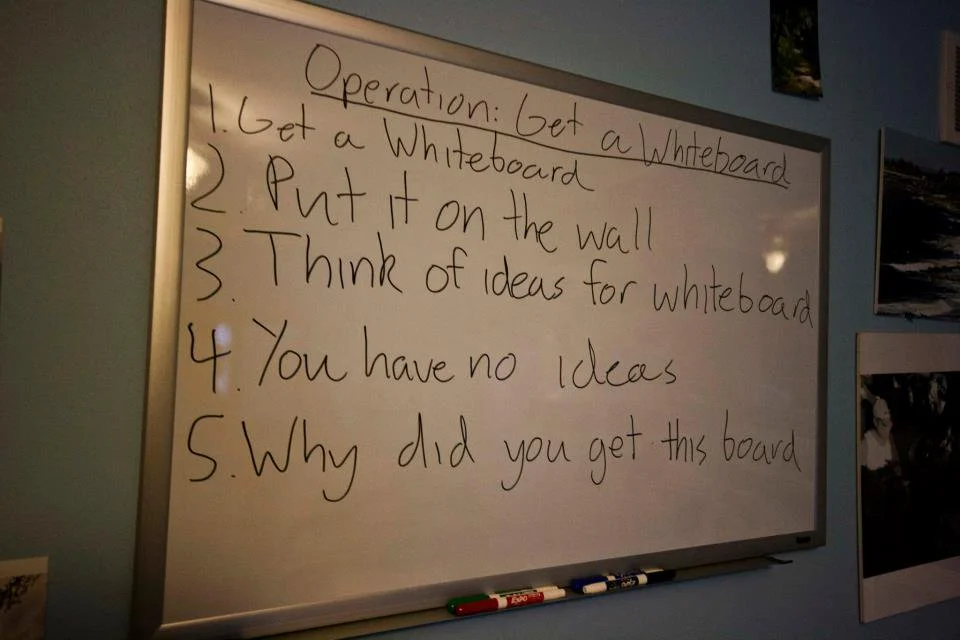 Operation: Get a Whiteboard
1. Get a Whiteboard
2. Put it on the wall
3. Think of ideas for whiteboard
4. You have no ideas
5. Why did you get this board
EXPO